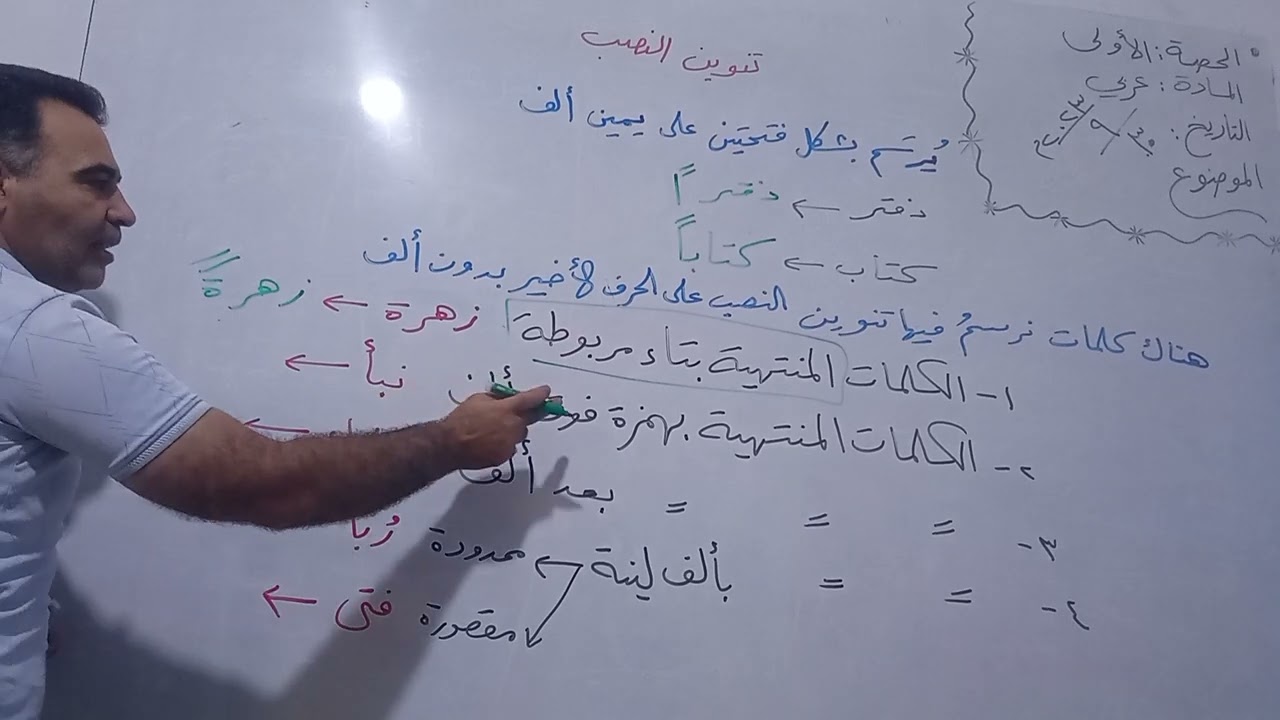 الحصة: الأولى
المادة: عربي
التاريخ: ٣٠/٩/٢٠٢٣
الموضوع
تنوين النصب
يُرسَم بشكل فتحتين على يمين ألف
دفتر ← دفتراً
كتاب ← كتاباً
هناك كلمات نرسمُ فيها تنوين النصب على الحرف الأخير بدون ألف
١- الكلمات المنتهية بتاء مربوطة زهرة ← زهرةً
٢- الكلمات المنتهية بهمزة فوق ألف نبأ ←
٣- = = = بعد ألف ←
٤- = = بألف لينة ← ممدودة رُبا
مقصورة فتى ←